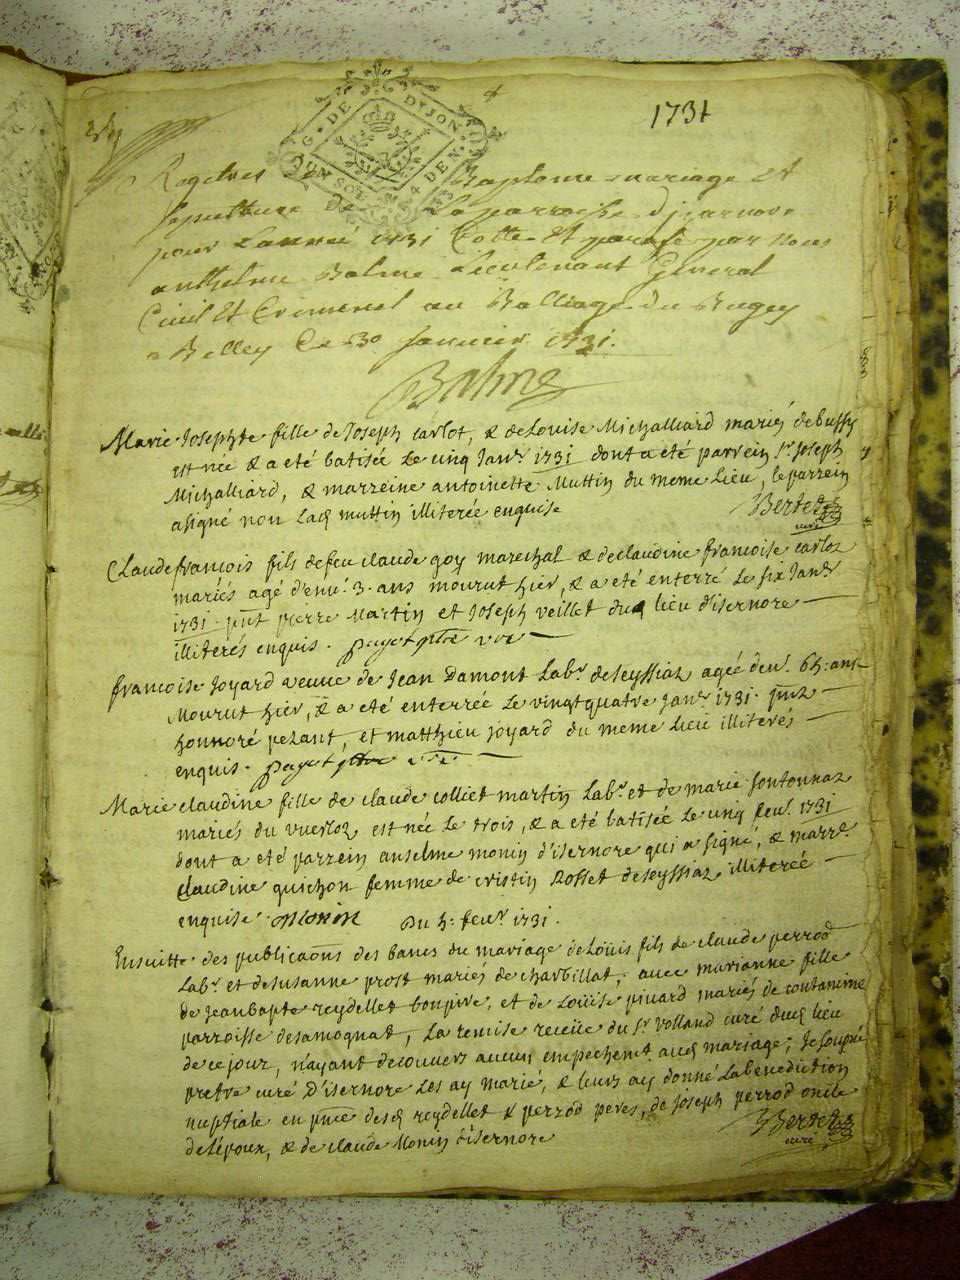 1731
G. DE DIJON
UN SOL 4 DEN.
Regitres de Bapteme mariage Et
sepulture de La parroisse d'jzarnore
pour L'année 1731 Cotté Et parafé par Nous
anthelme Balme Lieutenant General
Civil Et Criminel au Balliage du Bugey
a Belley Ce 30 Janvier 1731.
Balme
Marie Josephte fille de Joseph carlot, & de Louise Michalliard mariés debussy
est née & a eté batisée Le cinq Janvr 1731 dont a eté parrein Sr Joseph
Michalliard, & marreine antoinette Muttin du meme Lieu, le parrein
a signé non Lad muttin illiterée enquise
Bertet
curé
Claude francois fils defeu claude goy marechal & de claudine francoise carloz
mariés agé d'env. 3. ans mourut hier, & a eté enterré Le six Janvr
1731. pnt pierre Martin et Joseph veillet du lieu d'isernore
illiterés enquis.
francoise Joyard veuve de Jean Damont Labr deseyssiaz agée denv. 65. ans
Mourut hier, & a eté enterrée Le vingtquatre Janvr 1731. pntz
honnoré pezant, et matthieu joyard du meme Lieu illiterés
enquis.
Marie claudine fille de claude colliet martin Labr et de marie fontonnaz
mariés du vuerloz est née Le trois, & a eté batisée Le cinq fevr. 1731
dont a eté parrein anselme monin d'isernore qui a signé, & marre.
Claudine guichon femme de cristin Rosset deseyssiaz illiterée
enquise. Monin Du 5. fevr 1731.
Ensuitte des publicaons des bancs du mariage de Loüis fils de claude perrod
Labr et desusanne prost mariés de charbillat, avec marianne fille
de jean bapte reydellet, et de Loüise pivard mariés de contamine
parroisse desamognat, La remise recëue du Sr Volland curé dud lieu
de ce jour, n'ayant decouvers aucun empechemt aud mariage; Je soupné
pretre curé D'isernore Les ay marié, & Leurs ay donné La benediction
nuptiale en pnce desd reydellet & perrod peres, de Joseph perrod oncle
de L'epoux, & de claude Monin d'isernore
Bertet
curé